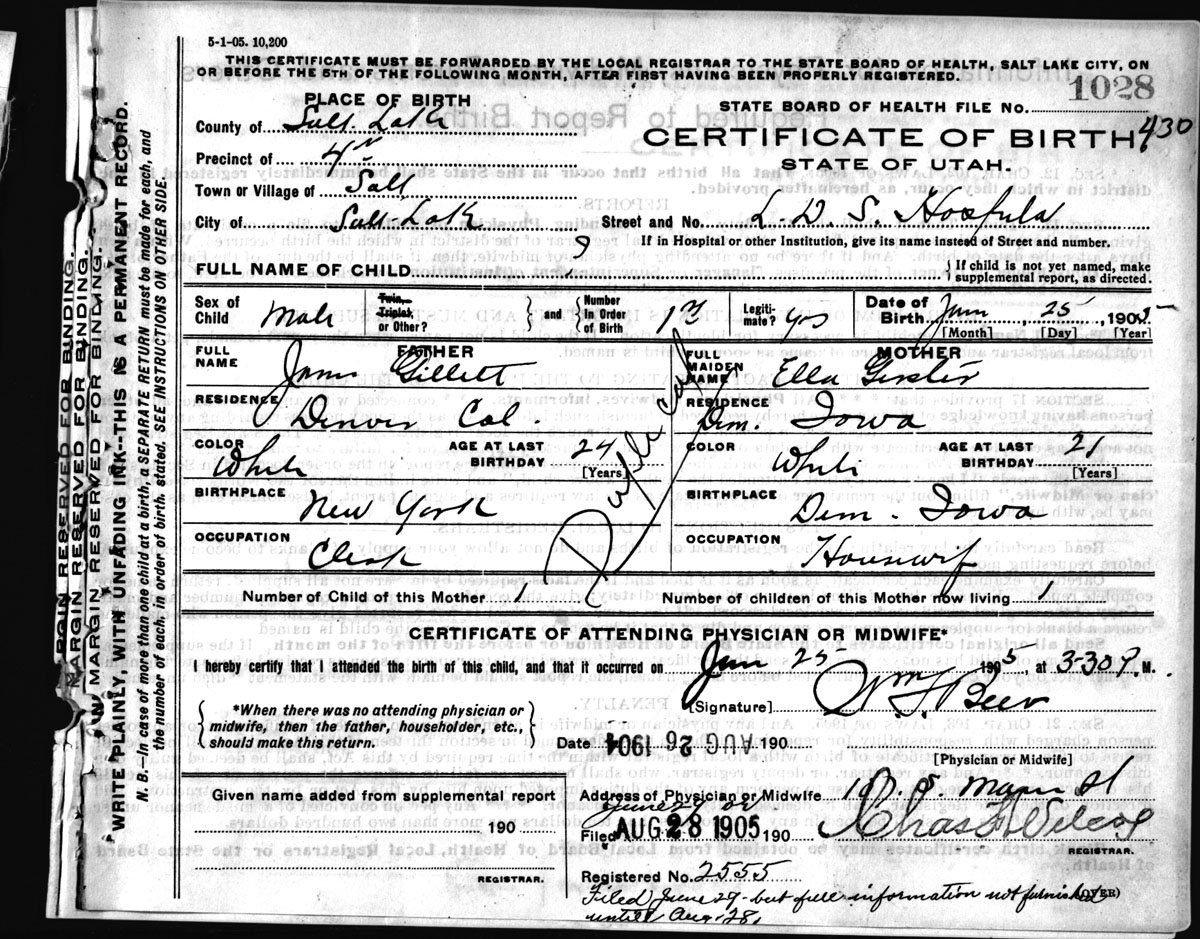 5-1-05. 10,200
THIS CERTIFICATE MUST BE FORWARDED BY THE LOCAL REGISTRAR TO THE STATE BOARD OF HEALTH, SALT LAKE CITY, ON
OR BEFORE THE 5TH OF THE FOLLOWING MONTH, AFTER FIRST HAVING BEEN PROPERLY REGISTERED.
1028
PLACE OF BIRTH
STATE BOARD OF HEALTH FILE NO.
County of Salt Lake
CERTIFICATE OF BIRTH 430
Precinct of 4th
STATE OF UTAH.
Town or Village of Salt
City of Salt-Lake
Street and No. L D S. Hospital
If in Hospital or other Institution, give its name instead of Street and number.
FULL NAME OF CHILD ?
If child is not yet named, make supplemental report, as directed.
Sex of Child Male
Twin, Triplet or Other?
and
Number In Order of Birth 13
Legitimate? yes
Date of Birth June 25, 1905
[Month] [Day] [Year]
FATHER
FULL NAME James Gillett
MOTHER
FULL MAIDEN NAME Ella
RESIDENCE Denver Col.
RESIDENCE Dem. Iowa
COLOR White
AGE AT LAST BIRTHDAY 24 [Years]
COLOR White
AGE AT LAST BIRTHDAY 21 [Years]
BIRTHPLACE New York
BIRTHPLACE Dem. Iowa
OCCUPATION Clerk
OCCUPATION Housewf
Duplicate
Number of Child of this Mother 1
Number of children of this Mother now living 1
CERTIFICATE OF ATTENDING PHYSICIAN OR MIDWIFE*
I hereby certify that I attended the birth of this child, and that it occurred on June 25 1905 at 3-30 P. M.
*When there was no attending physician or
midwife, then the father, householder, etc.,
should make this return.
[Signature] Wm F. Beer
Date AUG 26 1904 190
[Physician or Midwife]
Given name added from supplemental report
190
REGISTRAR.
Address of Physician or Midwife S. Main St
June 29 05
Filed AUG 28 1905 190
Chas F Wilcox
REGISTRAR.
Registered No. 2555
(OVER)
Filed June 29- but full information not furnished
until Aug-28,
MARGIN RESERVED FOR BINDING.
MARGIN RESERVED FOR BINDING.
MARGIN RESERVED FOR BINDING.
WRITE PLAINLY, WITH UNFADING INK--THIS IS A PERMANENT RECORD.
N. B.--In case of more than one child at a birth, a SEPARATE RETURN must be made for each, and
the number of each, in order of birth, stated. SEE INSTRUCTIONS ON OTHER SIDE.